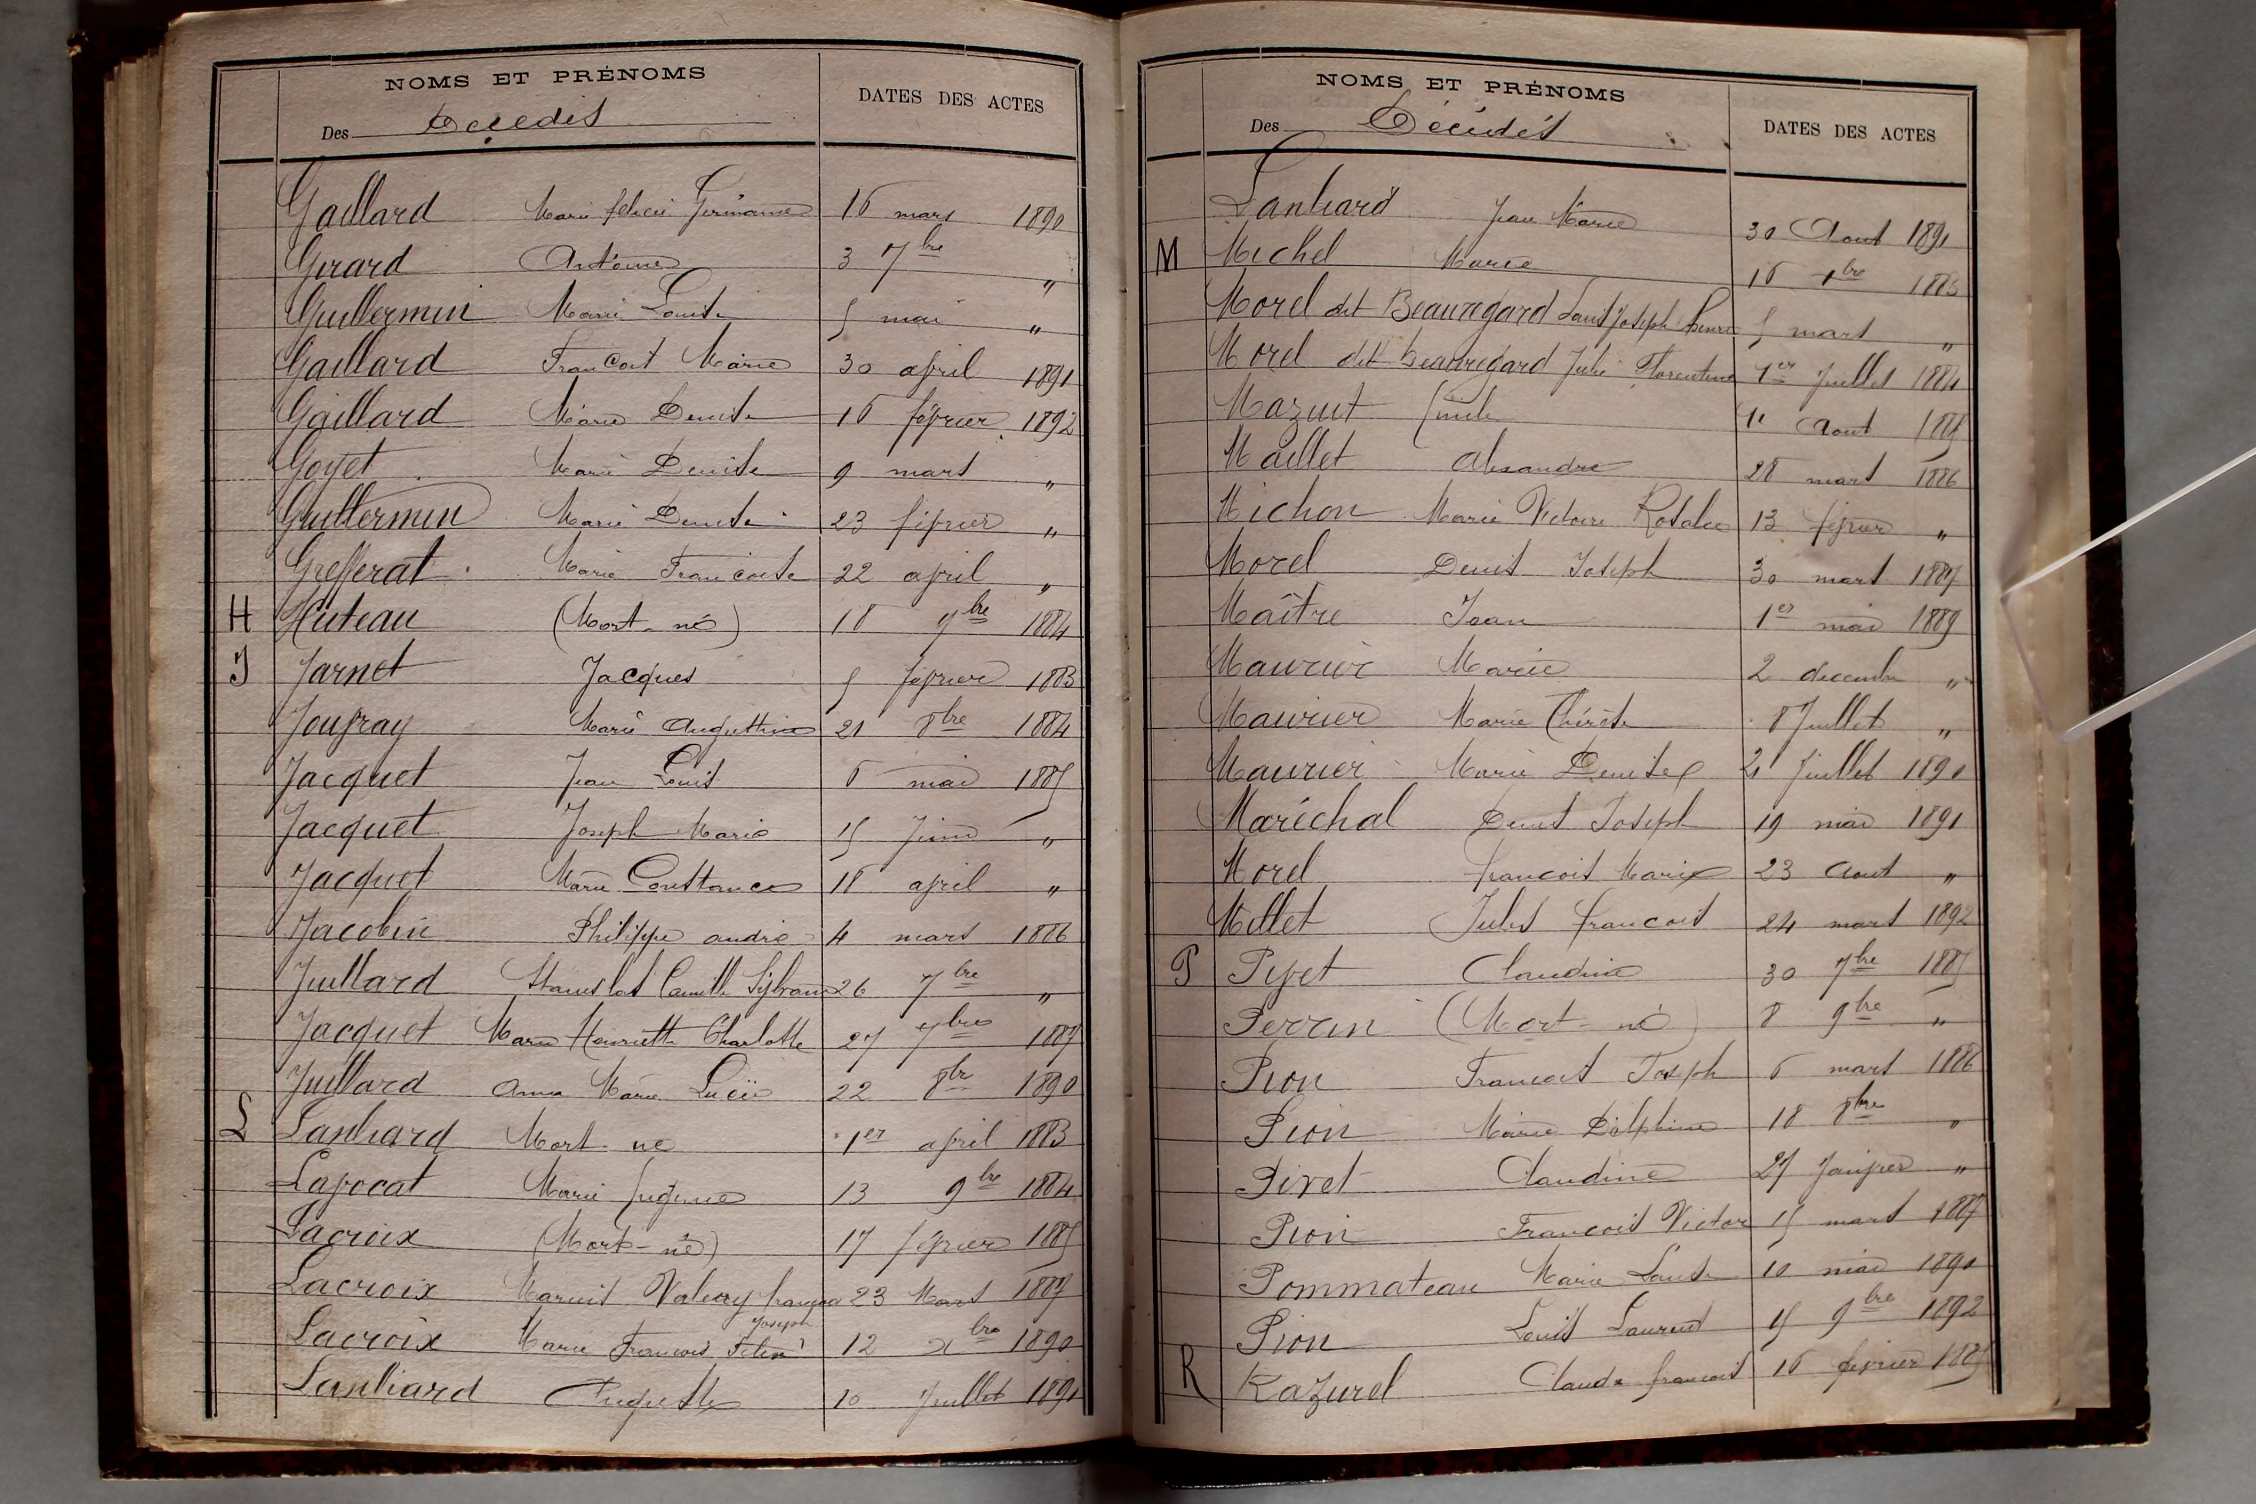 NOMS ET PRÉNOMS
DATES DES ACTES
Des Décédés
Gaillard Marie félicie Germaine 16 mars 1890
Girard Antoine 3 7bre "
Guillermin Marie Louise 5 mai "
Gaillard Francois Marie 30 avril 1891
Gaillard Marie Denise 16 février 1892
Goyet Marie Denise 9 mars "
Guillermin Marie Denise 23 février "
Grefferat Marie Francoise 22 avril "
H Huteau (Mort-né) 18 9bre 1884
J Jarnet Jacques 5 février 1883
Joufray Marie Augustine 21 8bre 1884
Jacquet Jean Louis 6 mai 1885
Jacquet Joseph Marie 15 Juin "
Jacquet Marie Constance 18 avril "
Jacobin Philippe andré 4 mars 1886
Juillard Stanislas Camille Sylvain 26 7bre "
Jacquet Marie Henriette Charlotte 27 7bre 1887
Juillard Anna Marie Lucie 22 8bre 1890
L Lanliard Mort-né 1er avril 1883
Lavocat Marie Eugénie 13 9bre 1884
Lacroix (Mort-né) 17 février 1885
Lacroix Marius Valery 23 Mars 1887
Joseph
Lacroix Marie Francois 12 xbre 1890
Lanliard Auguste 10 Juillet 1891
NOMS ET PRÉNOMS
DATES DES ACTES
Des Décédés
Lanliard Jean Marie 30 Aout 1891
M Michel Marie 16 bre 1883
Morel dit Beauregard Louis Joseph 5 mars "
Morel dit beauregard Julie Florentine 1er Juillet 1884
Mazuit Emile 11 Aout 1885
Maillet Alexandre 28 mars 1886
Michon Marie Victoire Rosalie 13 février "
Morel Denis Joseph 30 mars 1887
Maître Jean 1er mai 1889
Maurier Marie 2 decembre "
Maurier Marie Thérèse 8 Juillet "
Maurier Marie Denise 21 Juillet 1890
Maréchal Denis Joseph 19 mai 1891
Morel francois Marie 23 Aout "
Millet Jules francois 24 mars 1892
P Pivet Claudine 30 7bre 1885
Perrin (Mort-né) 8 9bre "
Pion Francois Joseph 6 mars 1886
Pion Marie Delphine 18 8bre "
Pivet Claudine 27 Janvier "
Pion Francois Victor 15 mars 1887
Pommateau Marie Louise 10 mai 1890
Pion Louis Laurent 15 9bre 1892
R Razurel Claude francois 16 février 1885